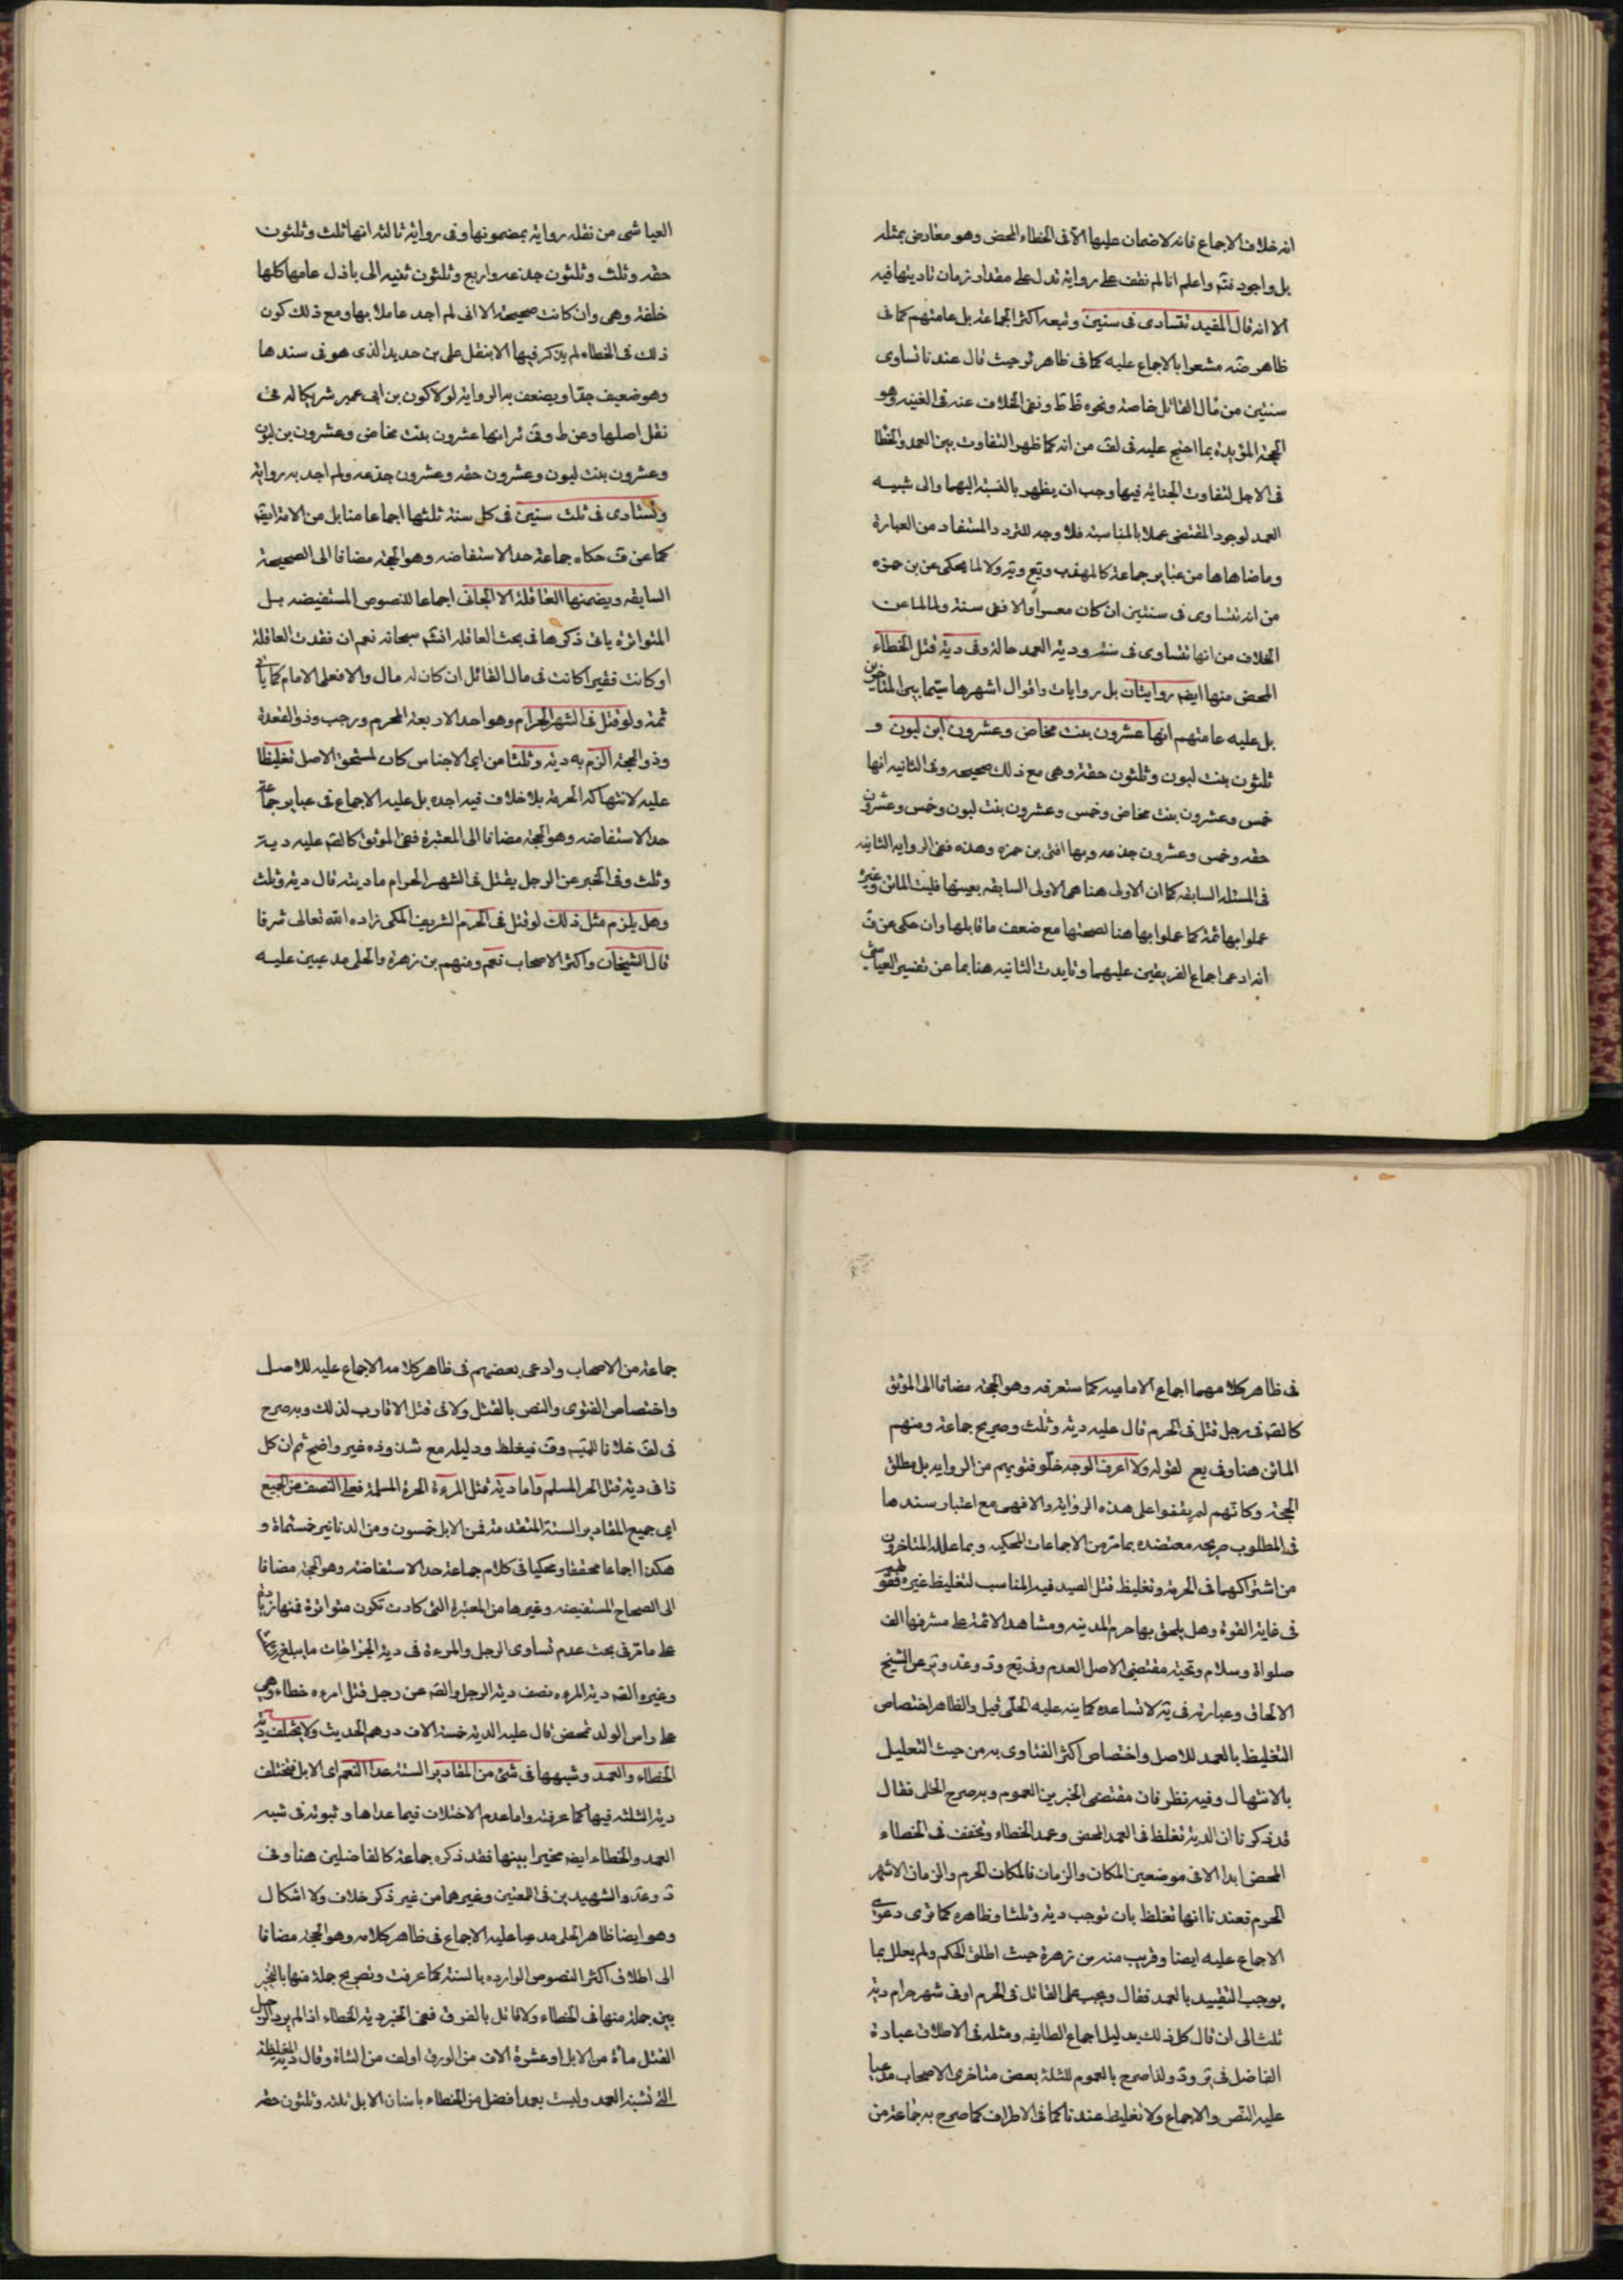 انه خلاف الاجماع فانه لاضمان عليها الا فى الخطاء المحض وهو معارض بمثله
بل واجود فتم واعلم انا لم نقف على رواية تدل على مقدار زمان تاديتها فيه
الا انه قال المفيد تستادى فى سنتين وتبعه اكثر الجماعة بل عامتهم كما فى
ظاهر ضه مشعرا بالاجماع عليه كما فى ظاهر ئر حيث قال عندنا تستادى
سنتين من مال القاتل خاصة ونحوه ظ ط ونفى الخلاف عنه فى الغنيه وهو
الحجة المؤيدة بما احتج عليه فى لف من انه كما ظهر التفاوت بين العمد والخطا
فى الاجل لتفاوت الجناية فيها وجب ان يظهر بالنسبة اليهما والى شبيه
العمد لوجود المقتضى عملا بالمناسبة فلا وجه للتردد المستفاد من العبارة
وماضاهاها من عباير جماعة كالمهذب ويع وير ولا لما يحكى عن بن حمزه
من انه تستادى فى سنتين ان كان معسرا والا ففى سنة ولا لما عن
الخلاف من انها تستادى فى سنة ودية العمد حالة وفى دية قتل الخطاء
المحض منها ايضا روايتان بل روايات واقوال اشهرها سيما بين المتاخرين
بل عليه عامتهم انها عشرون بنت مخاض وعشرون ابن لبون و
ثلثون بنت لبون وثلثون حقة وهى مع ذلك صحيحه وفى الثانيه انها
خمس وعشرون بنت مخاض وخمس وعشرون بنت لبون وخمس وعشرون
حقه وخمس وعشرون جذعه وبها افتى بن حمزه وهذه فهى الروايه الثانيه
فى المسئله السابقه كما ان الاولى هنا هى الاولى السابقه بعينها فليت الماتن وغيره
عملوا بها ثمة كما عملوا بها هنا لصحتها مع ضعف ما قابلها وان حكى عن ف
انه ادعى اجماع الفريقين عليهما وتايدت الثانيه هنا بما عن تفسير العياشى
العياشى من نقله رواية بمضمونها وفى رواية ثالثه انها ثلث وثلثون
حقه وثلث وثلثون جذعه واربع وثلثون ثنيه الى باذل عامها كلها
خلفة وهى وان كانت صحيحة الا انى لم اجد عاملا بها ومع ذلك كون
ذلك فى الخطاء لم يذكر فيها الا بنقل على بن حديد الذى هو فى سندها
وهو ضعيف جدا ويضعف به الرواية لولا كون بن ابى عمير شريكا له فى
نقل اصلها وعن ط وفى ئر انها عشرون بنت مخاض وعشرون بن لبون
وعشرون بنت لبون وعشرون حقه وعشرون جذعه ولم اجد به رواية
وتستادى فى ثلث سنين فى كل سنة ثلثها اجماعا منا بل من الامة ايضا
كما عن ف حكاه جماعة حد الاستفاضه وهو الحجة مضافا الى الصحيحة
السابقه ويضمنها العاقلة لا الجانى اجماعا للنصوص المستفيضه بل
المتواترة ياتى ذكرها فى بحث العاقله انشه سبحانه نعم ان فقدت العاقلة
او كانت فقيرا كانت فى مال القاتل ان كان له مال والا فعلى الامام كما ياتى
ثمة ولو قتل فى الشهر الحرام وهو احد الاربعة المحرم ورجب وذو القعدة
وذو الحجة الزم به دية وثلثا من ايما الاجناس كان لمستحق الاصل تغليظا
عليه لانتهاكه الحرمة بلا خلاف فيه اجده بل عليه الاجماع فى عباير جماعة
حد الاستفاضه وهو الحجة مضافا الى المعتبرة ففى الموثق كالصه عليه دية
وثلث وفى الخبر عن الرجل يقتل فى الشهر الحرام ما ديته قال دية وثلث
وهل يلزم مثل ذلك لو قتل فى الحرم الشريف المكى زاده الله تعالى شرفا
قال الشيخان واكثر الاصحاب نعم ومنهم بن زهرة والحلى مدعيين عليه
فى ظاهر كلامهما اجماع الاماميه كما ستعرفه وهو الحجة مضافا الى الموثق
كالصه فى رجل قتل فى الحرم قال عليه دية وثلث وصريح جماعة ومنهم
الماتن هنا وفى يع لقوله ولا اعرف الوجه خلو فتويهم من الروايه بل مطلق
الحجة وكانهم لم يقفوا على هذه الرواية والا فهى مع اعتبار سندها
فى المطلوب صريحه معتضده بما مر من الاجماعات المحكيه وبما علله المتاخرون
من اشتراكهما فى الحرمة وتغليظ قتل الصيد فيه المناسب لتغليظ غيره فقولهم
فى غاية القوة وهل يلحق بها حرم المدينه ومشاهد الائمة على مشرفها الف
صلواة وسلام وتحية مقتضى الاصل العدم وفى يع ود وعد وير عن الشيخ
الالحاق وعبارته فى يه لا تساعده كما ينبه عليه الحلى قيل والظاهر اختصاص
التغليظ بالعمد للاصل واختصاص اكثر الفتاوى به من حيث التعليل
بالانتهاك وفيه نظر فان مقتضى الخبرين العموم وبه صرح الحلى فقال
قد ذكرنا ان الدية تغلظ فى العمد المحض وعمد الخطاء وتخفف فى الخطاء
المحض ابدا الا فى موضعين المكان والزمان فالمكان الحرم والزمان الاشهر
الحرم فعندنا انها تغلظ بان توجب دية وثلثا وظاهره كما ترى دعوى
الاجماع عليه ايضا وقريب منه بن زهرة حيث اطلق الحكم ولم يعلل بما
يوجب التقييد بالعمد فقال ويجب على القاتل فى الحرم او فى شهر حرام دية
ثلث الى ان قال كل ذلك بدليل اجماع الطايفه ومثله فى الاطلاق عبارة
الفاضل فى ير ود ولذا صرح بالعموم للثلثة بعض متاخرى الاصحاب مدعيا
عليه النص والاجماع ولا تغليظ عندنا كما فى الاطراف كما صرح به جماعة من
جماعة من الاصحاب وادعى بعضهم فى ظاهر كلامه الاجماع عليه للاصل
واختصاص الفتوى والنص بالقتل ولا فى قتل الاقارب لذلك وبه صرح
فى لف خلافا وف فيغلظ ودليله مع شذوذه غير واضح ثم ان كل
ذا فى دية قتل الحر المسلم واما دية قتل المرءة الحرة المسلمة فعلى النصف من الجميع
اى جميع المقادير الستة المتقدمة فمن الابل خمسون ومن الدنانير خمسماة و
هكذا اجماعا محققا ومحكيا فى كلام جماعة حد الاستفاضة وهو الحجة مضافا
الى الصحاح المستفيضه وغيرها من المعتبرة التى كادت تكون متواترة فمنها زيادة
على ما مر فى بحث عدم تساوى الرجل والمرءة فى دية الجراحات ما يبلغ
وغيره والصه دية المرءه نصف دية الرجل والصه عن رجل قتل امرءه خطاء وهى
على راس الولد تمخض قال عليه الدية خمسة الاف درهم الحديث ولا يختلف دية
الخطاء والعمد وشبهها فى شئ من المقادير الستة عدا النعم اى الابل فتختلف
دية الثلثه فيها كما عرفته واما عدم الاختلاف فيما عداها وثبوته فى شبه
العمد والخطاء ايضا مخيرا بينها فقد ذكره جماعة كالفاضلين هنا وفى
د وعد والشهيدين فى اللمعتين وغيرهما من غير ذكر خلاف ولا اشكال
وهو ايضا ظاهر الحلى مدعيا عليه الاجماع فى ظاهر كلامه وهو الحجة مضافا
الى اطلاق اكثر النصوص الوارده بالستة كما عرفت وتصريح جملة منها بالتخيير
بين جملة منها فى الخطاء ولا قائل بالفرق ففى الخبر دية الخطاء اذا لم يرد الرجل
القتل مأة من الابل او عشرة الاف من الورق او الف من الشاة وقال دية المغلظة
التى تشبه العمد وليست بعمد افضل من الخطاء باسنان الابل ثلثه وثلثون حقه